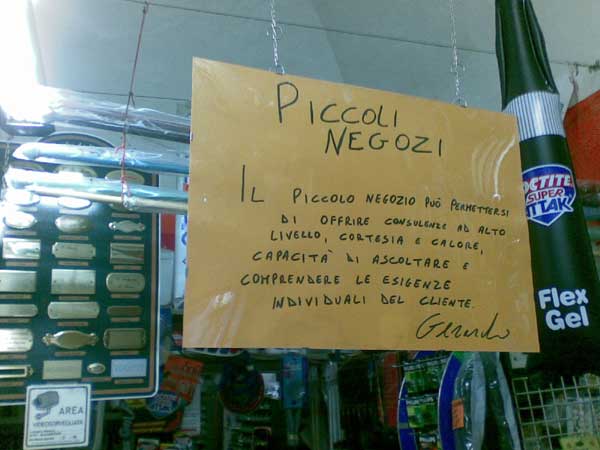 PICCOLI
NEGOZI
IL PICCOLO NEGOZIO PUÒ PERMETTERSI
DI OFFRIRE CONSULENZE AD ALTO
LIVELLO, CORTESIA E CALORE,
CAPACITA' DI ASCOLTARE E
COMPRENDERE LE ESIGENZE
INDIVIDUALI DEL CLIENTE.
Gerardo
LOCTITE
SUPER
ATTAK
Flex
Gel
AREA
VIDEOSORVEGLIATA